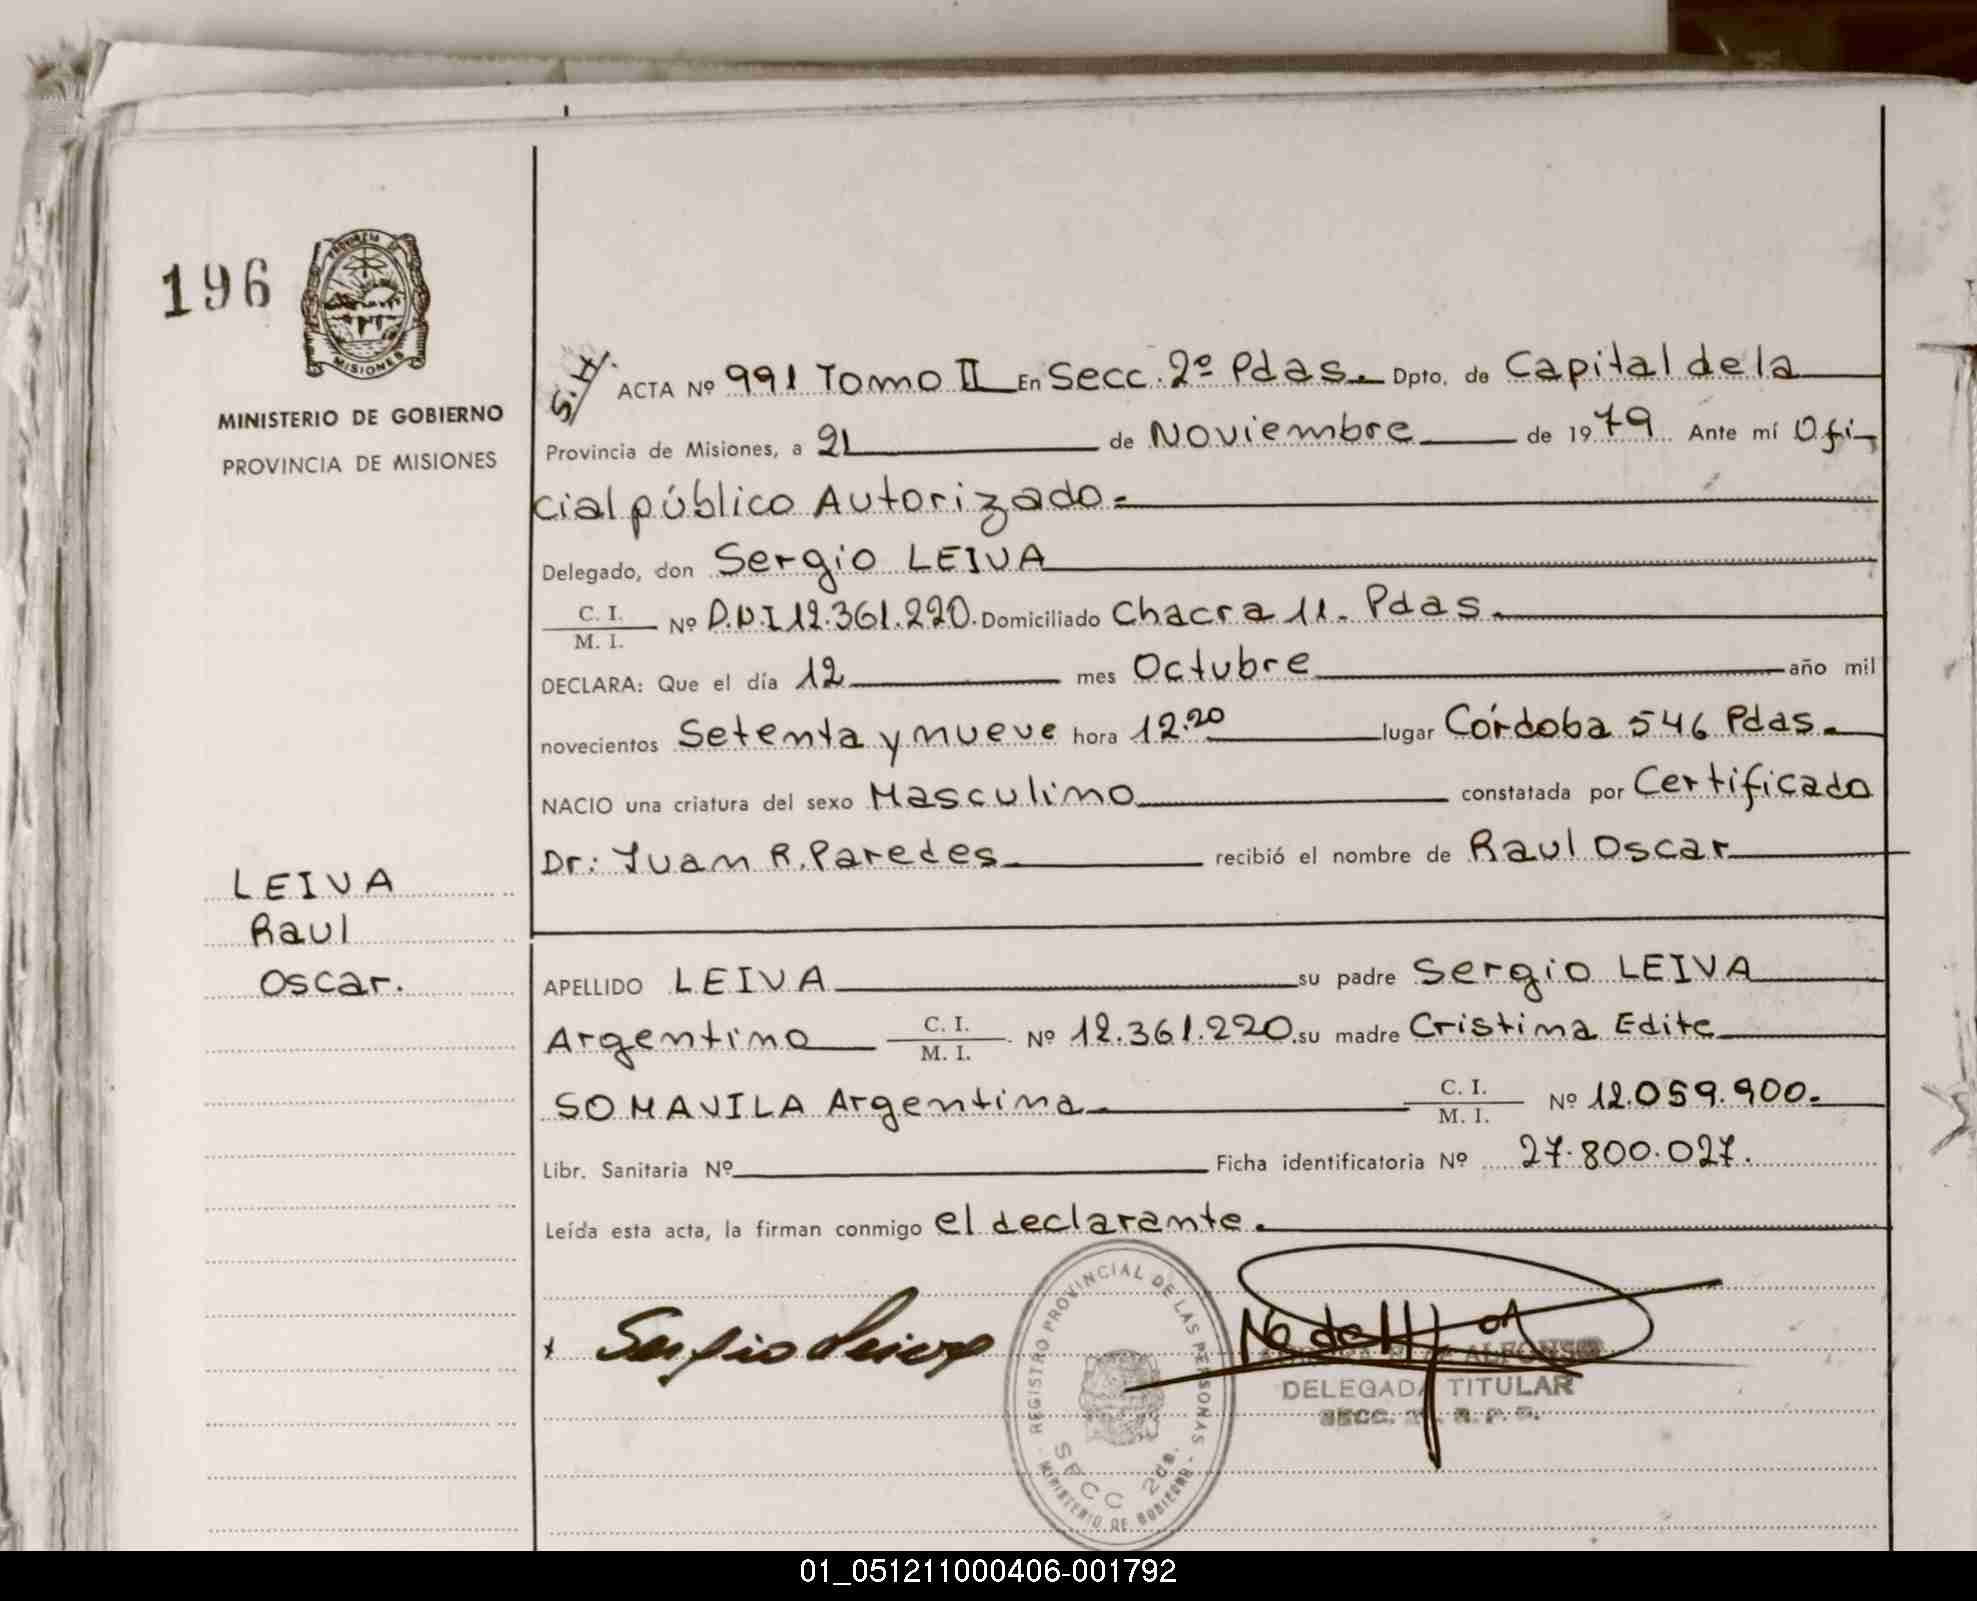 196
MISIONES
MINISTERIO DE GOBIERNO
PROVINCIA DE MISIONES
S.H.
ACTA Nº 991 Tomo II En Secc. 2º Pdas. Dpto. de Capital de la
Provincia de Misiones, a 21 de Noviembre de 1979 Ante mí Ofi-
cial público Autorizado.=
Delegado, don Sergio LEIVA
C. I.
M. I. Nº D.N.I 12.361.220. Domiciliado Chacra 11. Pdas.
DECLARA: Que el día 12 mes Octubre año mil
novecientos Setenta y nueve hora 12.20 lugar Córdoba 546 Pdas.
NACIO una criatura del sexo Masculino constatada por Certificado
Dr: Juan R. Paredes recibió el nombre de Raul Oscar
LEIVA
Raul
Oscar.
APELLIDO LEIVA su padre Sergio LEIVA
Argentino C. I.
M. I. Nº 12.361.220. su madre Cristina Edite
SOMAVILA Argentina C. I.
M. I. Nº 12.059.900.
Libr. Sanitaria Nº Ficha identificatoria Nº 27.800.027.
Leída esta acta, la firman conmigo el declarante.
x Sergio Leiva
REGISTRO PROVINCIAL DE LAS PERSONAS
SECC 2da.
MINISTERIO DE GOBIERNO
ALFONSO
DELEGADA TITULAR
SECC. R. P. P.
01_051211000406-001792